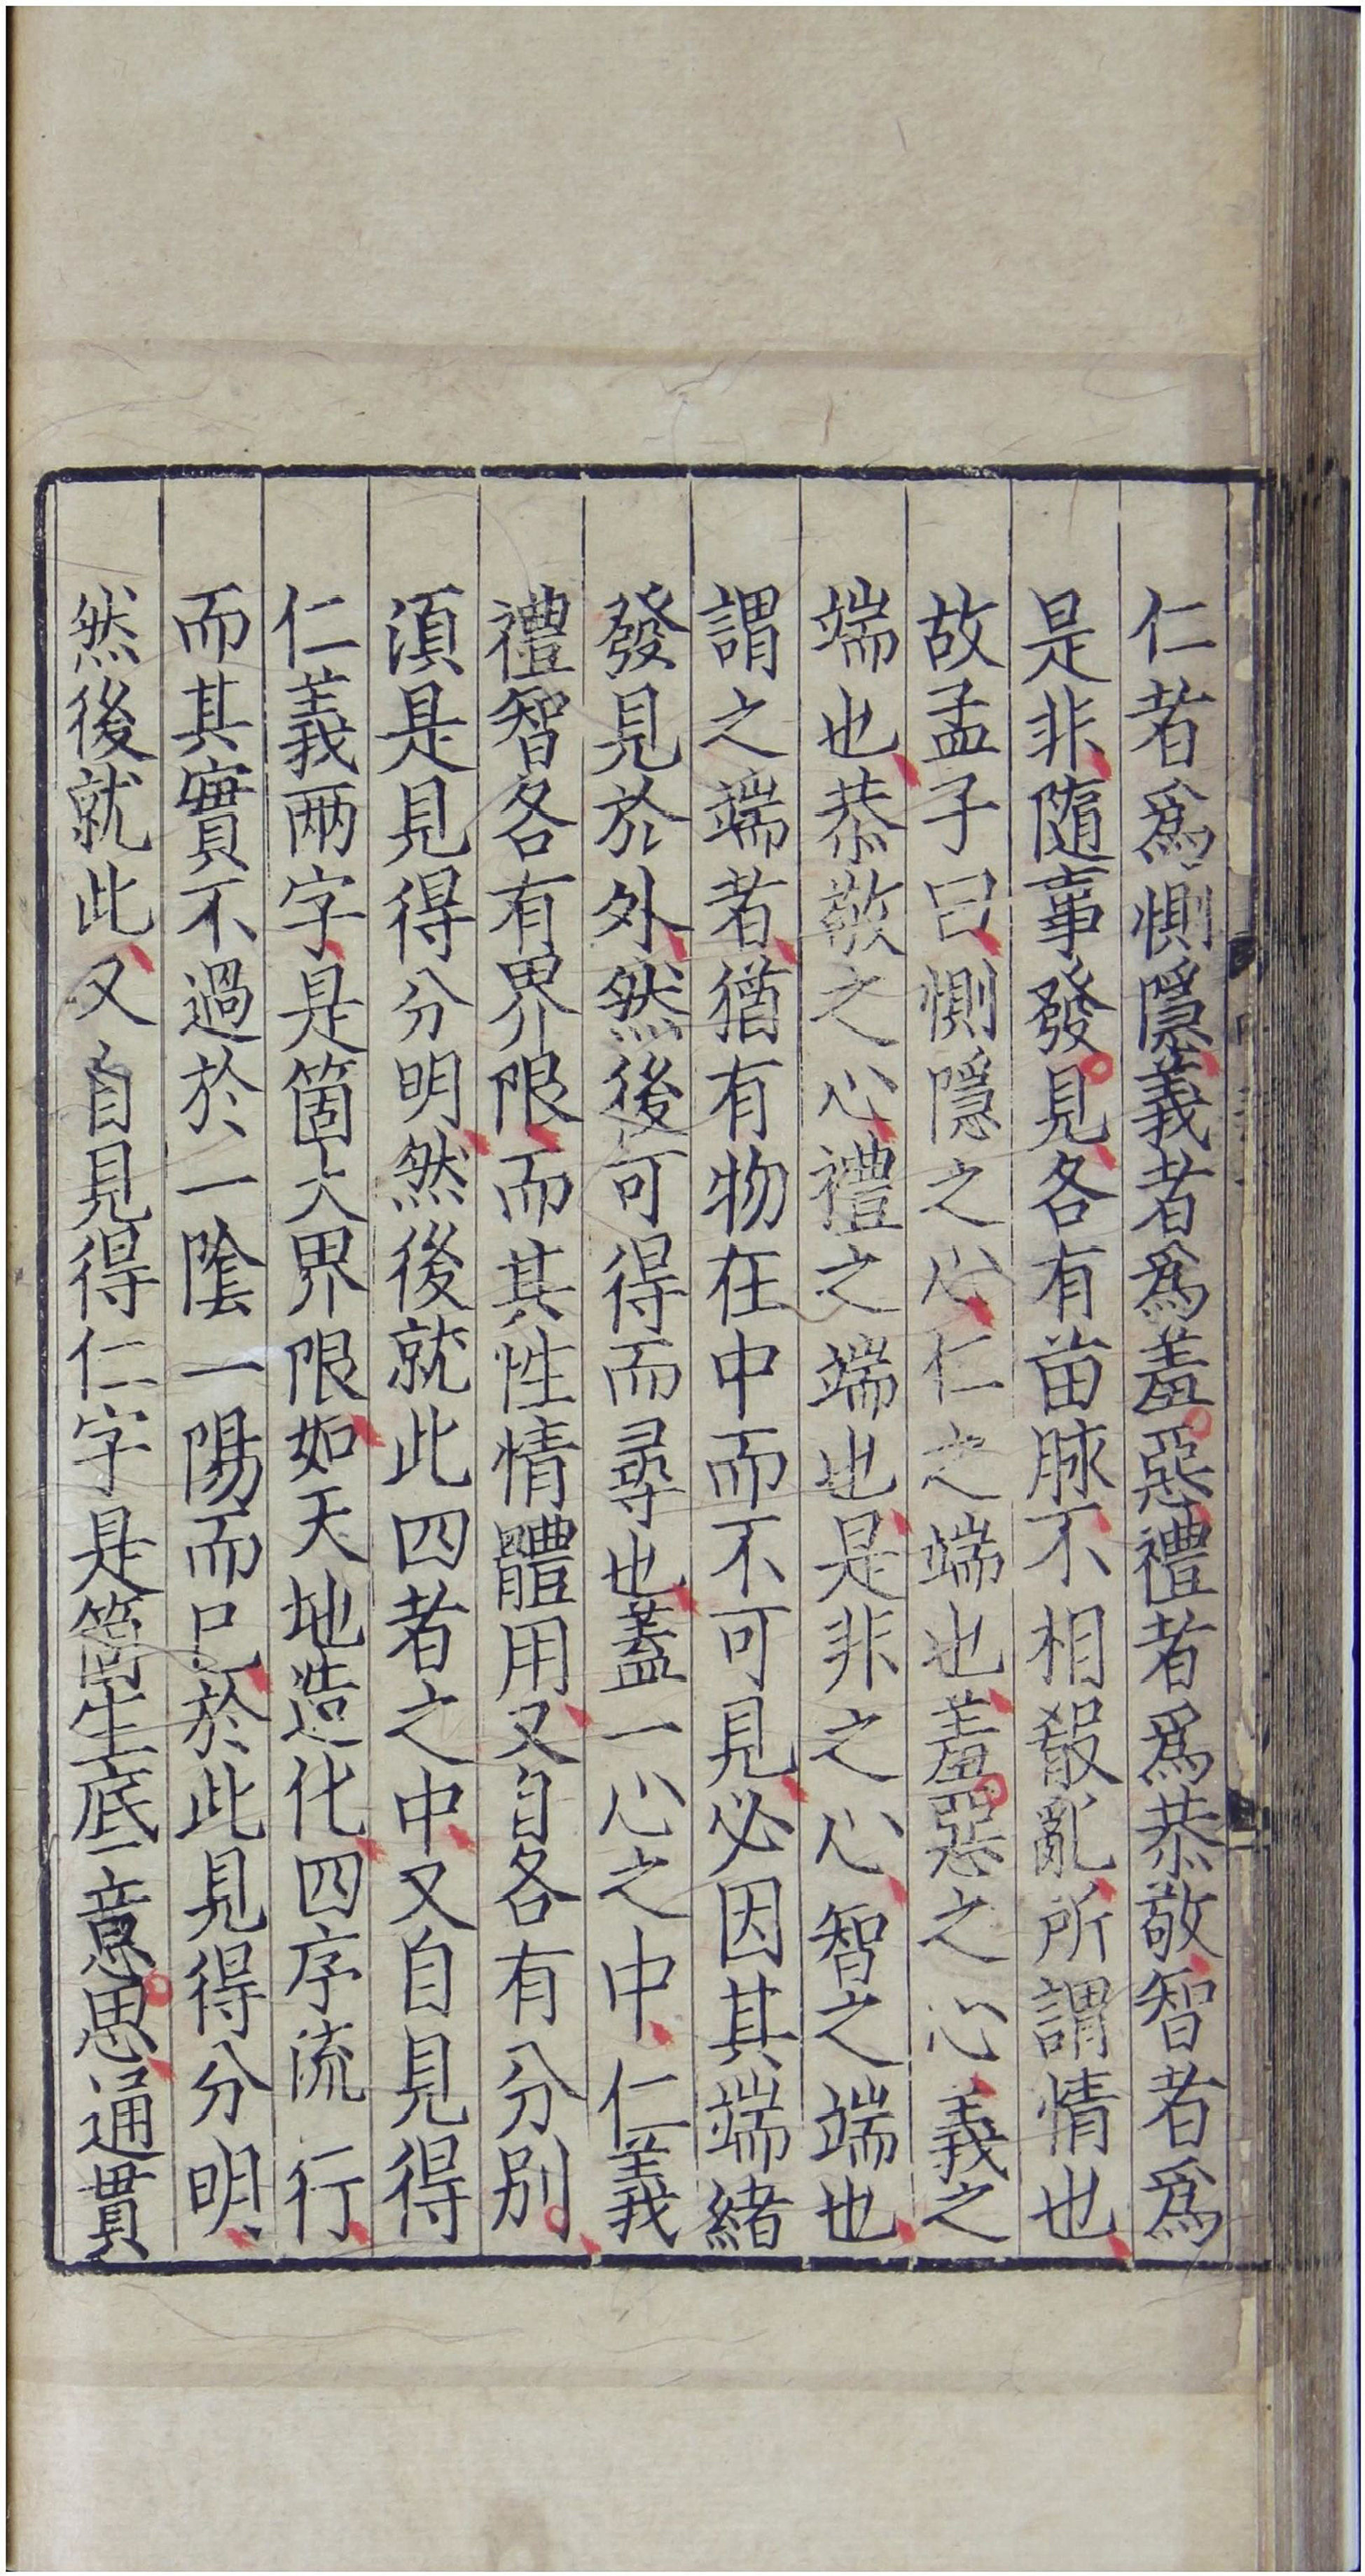 仁者爲惻隱義者爲羞惡禮者爲恭敬智者爲
是非隨事發見各有苗脉不相殽亂所謂情也
故孟子曰惻隱之心仁之端也羞惡之心義之
端也恭敬之心禮之端也是非之心智之端也
謂之端者猶有物在中而不可見必因其端緒
發見於外然後可得而尋也蓋一心之中仁義
禮智各有界限而其性情體用又自各有分別
須是見得分明然後就此四者之中又自見得
仁義兩字是箇大界限如天地造化四序流行
而其實不過於一陰一陽而已於此見得分明
然後就此又自見得仁字是箇生底意思通貫